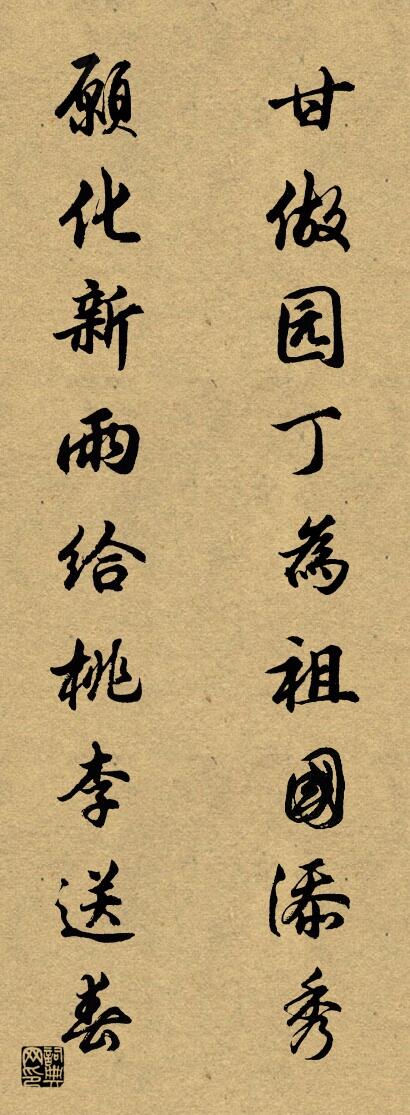 甘做园丁為祖國添秀
願化新雨給桃李送春
詞典网印